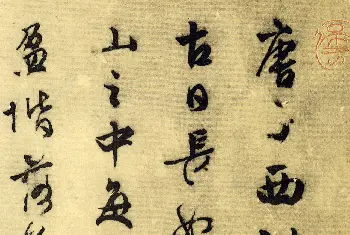 唐子西
古日長如
山之中每
盈堦落